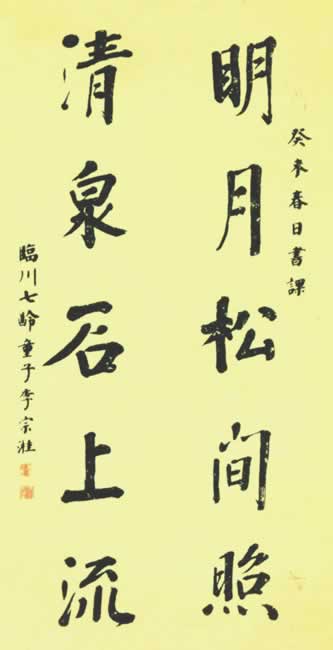 癸未春日書課
明月松間照
清泉石上流
臨川七齡童子李宗